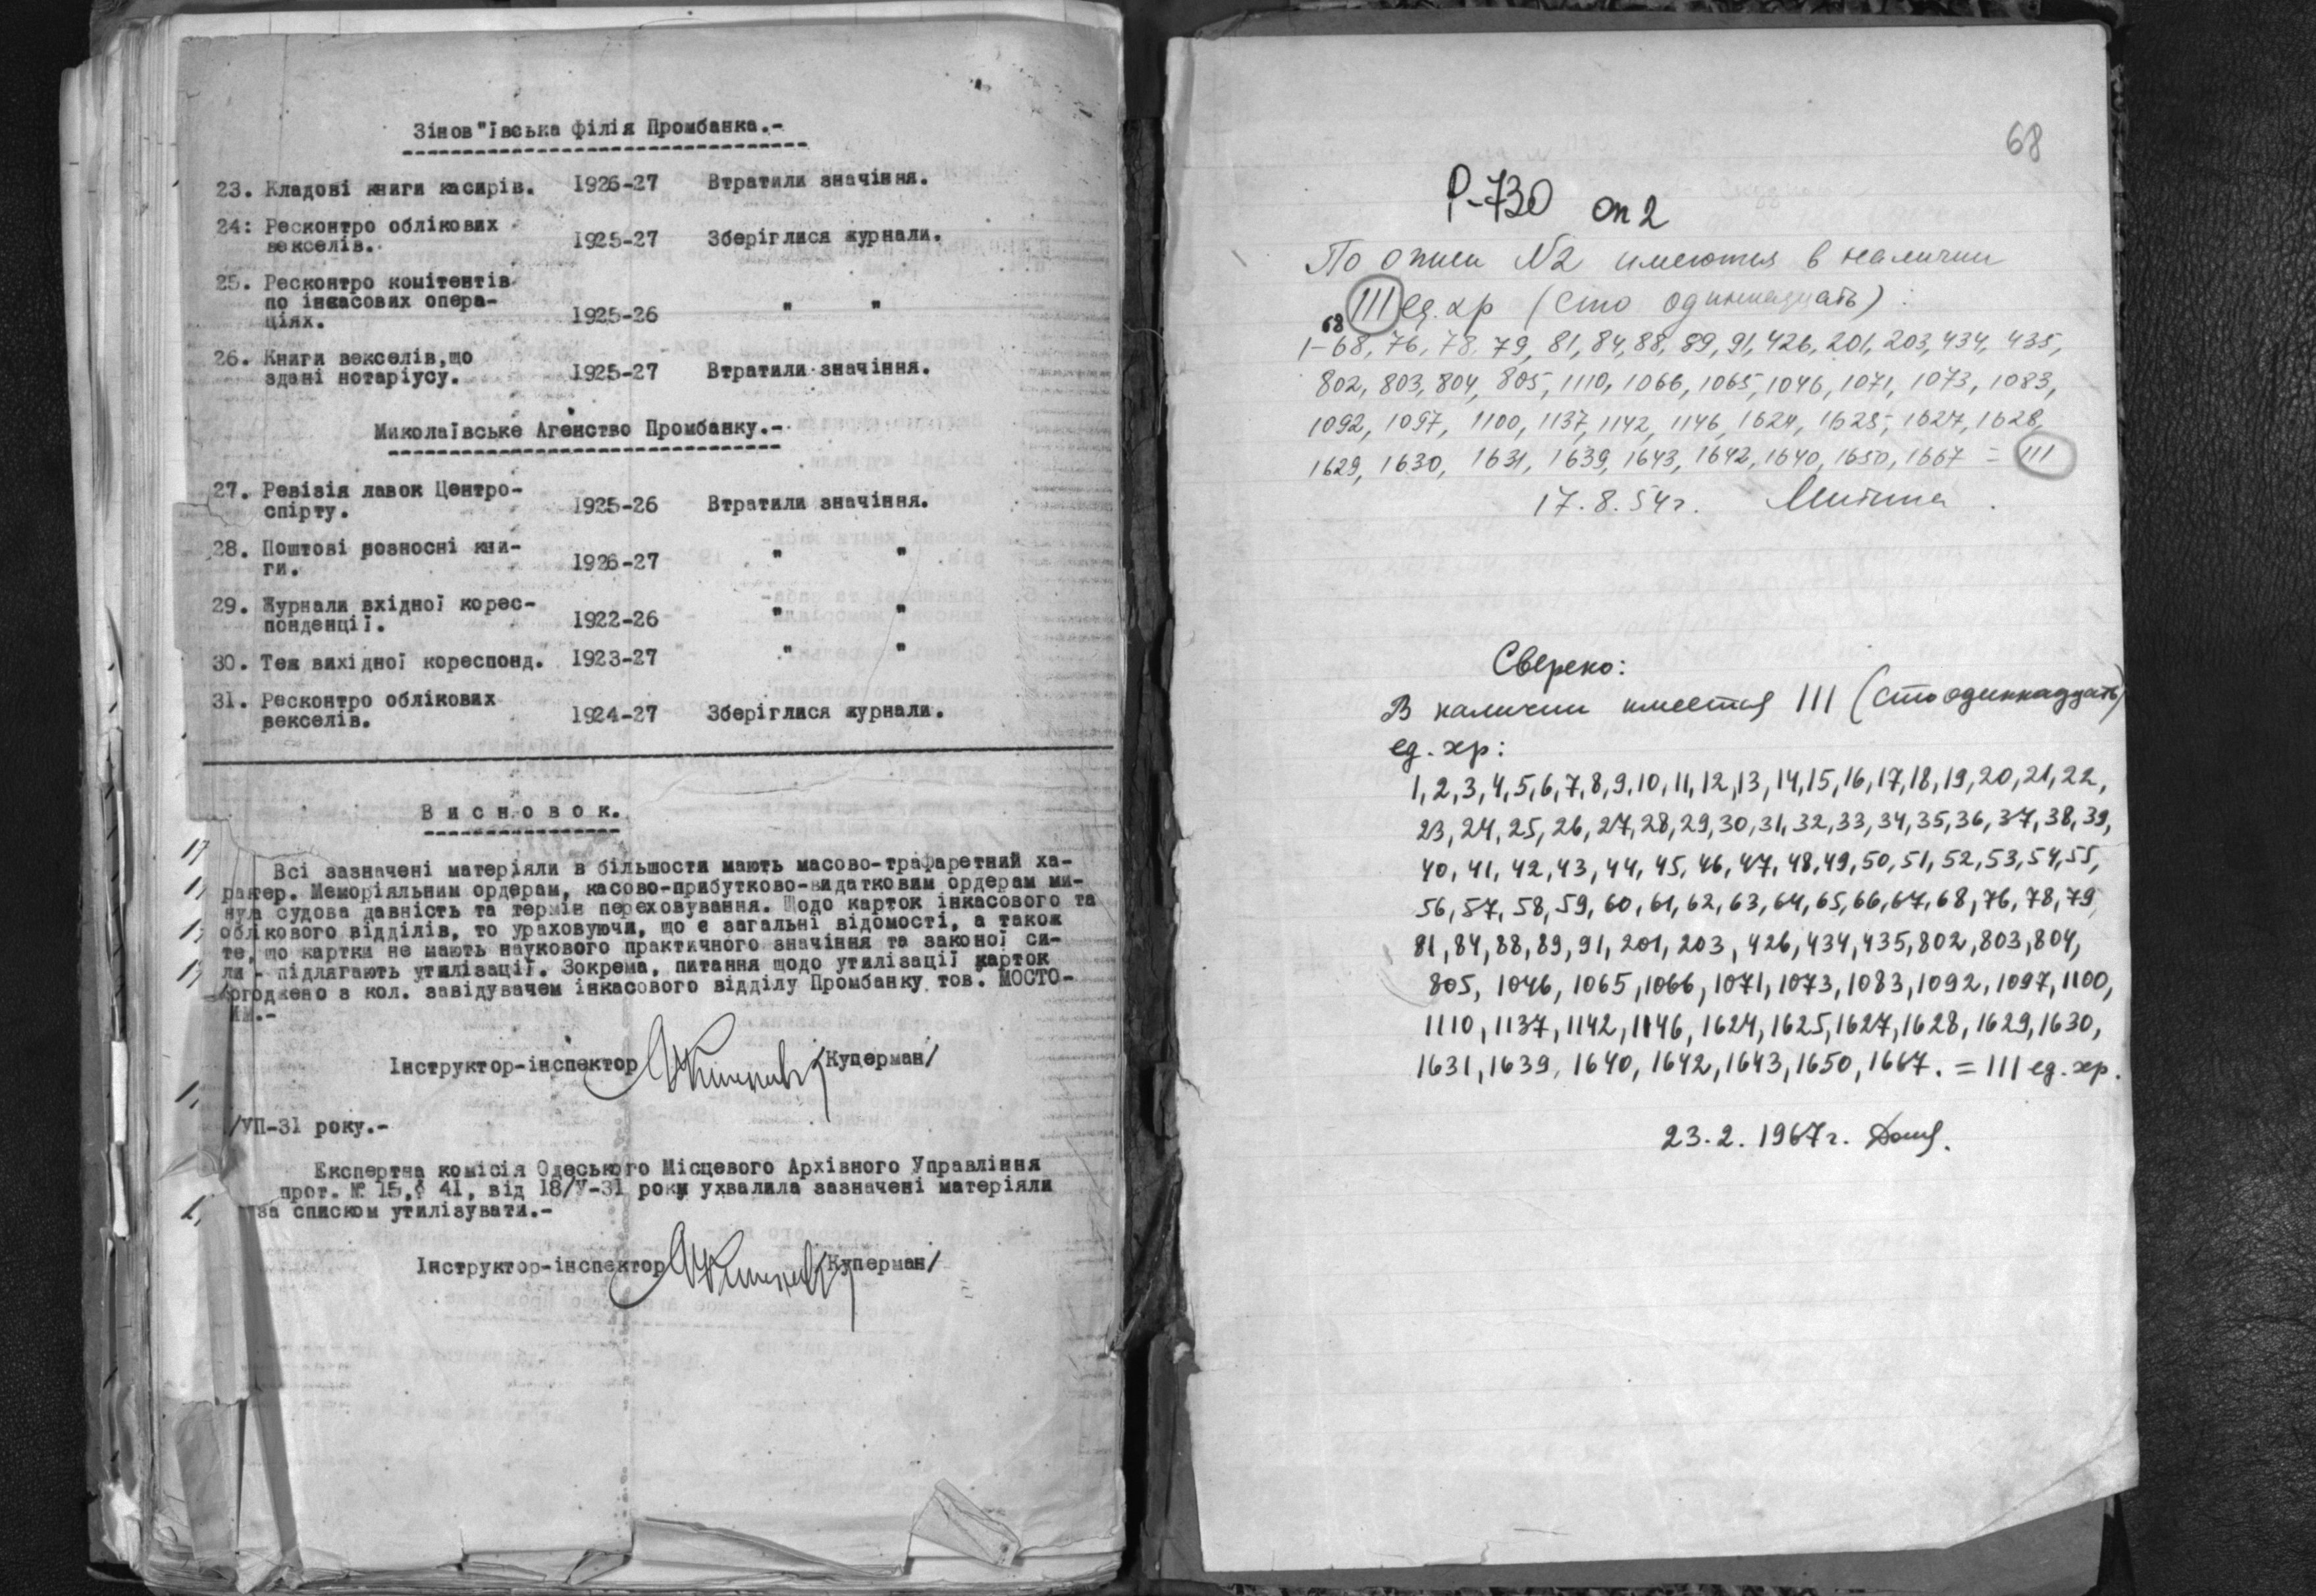 Зінов"ївська філія Промбанка.-
23. Кладові книги касирів. 1926-27 Втратили значіння.
24: Ресконтро облікових
векселів. 1925-27 Зберіглися журнали.
25. Ресконтро комітентів
по інкасових опера-
ціях. 1925-26 " "
26. Книги векселів,що
здані нотаріусу. 1925-27 Втратили значіння.
Миколаївське Агенство Промбанку.-
27. Ревізія лавок Центро-
спірту. 1925-26 Втратили значіння.
28. Поштові розносні кни-
ги. 1926-27 " "
29. Журнали вхідної корес-
понденції. 1922-26 " "
30. Теж вихідної кореспонд. 1923-27 " "
31. Ресконтро облікових
векселів. 1924-27 Зберіглися журнали.
В и с н о в о к.
Всі зазначені матеріяли в більшости мають масово-трафаретний ха-
рактер. Меморіяльним ордерам, касово-прибутково-видатковим ордерам ми-
нула судова давність та термін переховування. Щодо карток інкасового та
облікового відділів, то ураховуючи, що є загальні відомості, а також
те, що картки не мають наукового практичного значіння та законої си-
ли - підлягають утилізації. Зокрема, питання щодо утилізації карток
огоджено з кол. завідувачем інкасового відділу Промбанку тов. МОСТО-
ИМ.-
Інструктор-інспектор Куперман/
/УП-31 року.-
Експертна комісія Одеського Місцевого Архівного Управління
прот. № 15,§ 41, від 18/У-31 року ухвалила зазначені матеріяли
за списком утилізувати.-
Інструктор-інспектор Куперман/
68
Р-730 оп 2
По описи №2 имеются в наличии
111 ед. хр (сто одиннадцать) :
68
1-68, 76, 78, 79, 81, 84, 88, 89, 91, 426, 201, 203, 434, 435,
802, 803, 804, 805, 1110, 1066, 1065, 1046, 1071, 1073, 1083,
1092, 1097, 1100, 1137, 1142, 1146, 1624, 1625, 1627, 1628,
1629, 1630, 1631, 1639, 1643, 1642, 1640, 1650, 1667 = 111
17. 8. 54 г.
Сверено:
В наличии имеется 111 (сто одиннадцать)
ед. хр:
1, 2, 3, 4, 5, 6, 7, 8, 9, 10, 11, 12, 13, 14, 15, 16, 17, 18, 19, 20, 21, 22,
23, 24, 25, 26, 27, 28, 29, 30, 31, 32, 33, 34, 35, 36, 37, 38, 39,
40, 41, 42, 43, 44, 45, 46, 47, 48, 49, 50, 51, 52, 53, 54, 55,
56, 57, 58, 59, 60, 61, 62, 63, 64, 65, 66, 67, 68, 76, 78, 79,
81, 84, 88, 89, 91, 201, 203, 426, 434, 435, 802, 803, 804,
805, 1046, 1065, 1066, 1071, 1073, 1083, 1092, 1097, 1100,
1110, 1137, 1142, 1146, 1624, 1625, 1627, 1628, 1629, 1630,
1631, 1639, 1640, 1642, 1643, 1650, 1667. = 111 ед. хр.
23. 2. 1967 г.